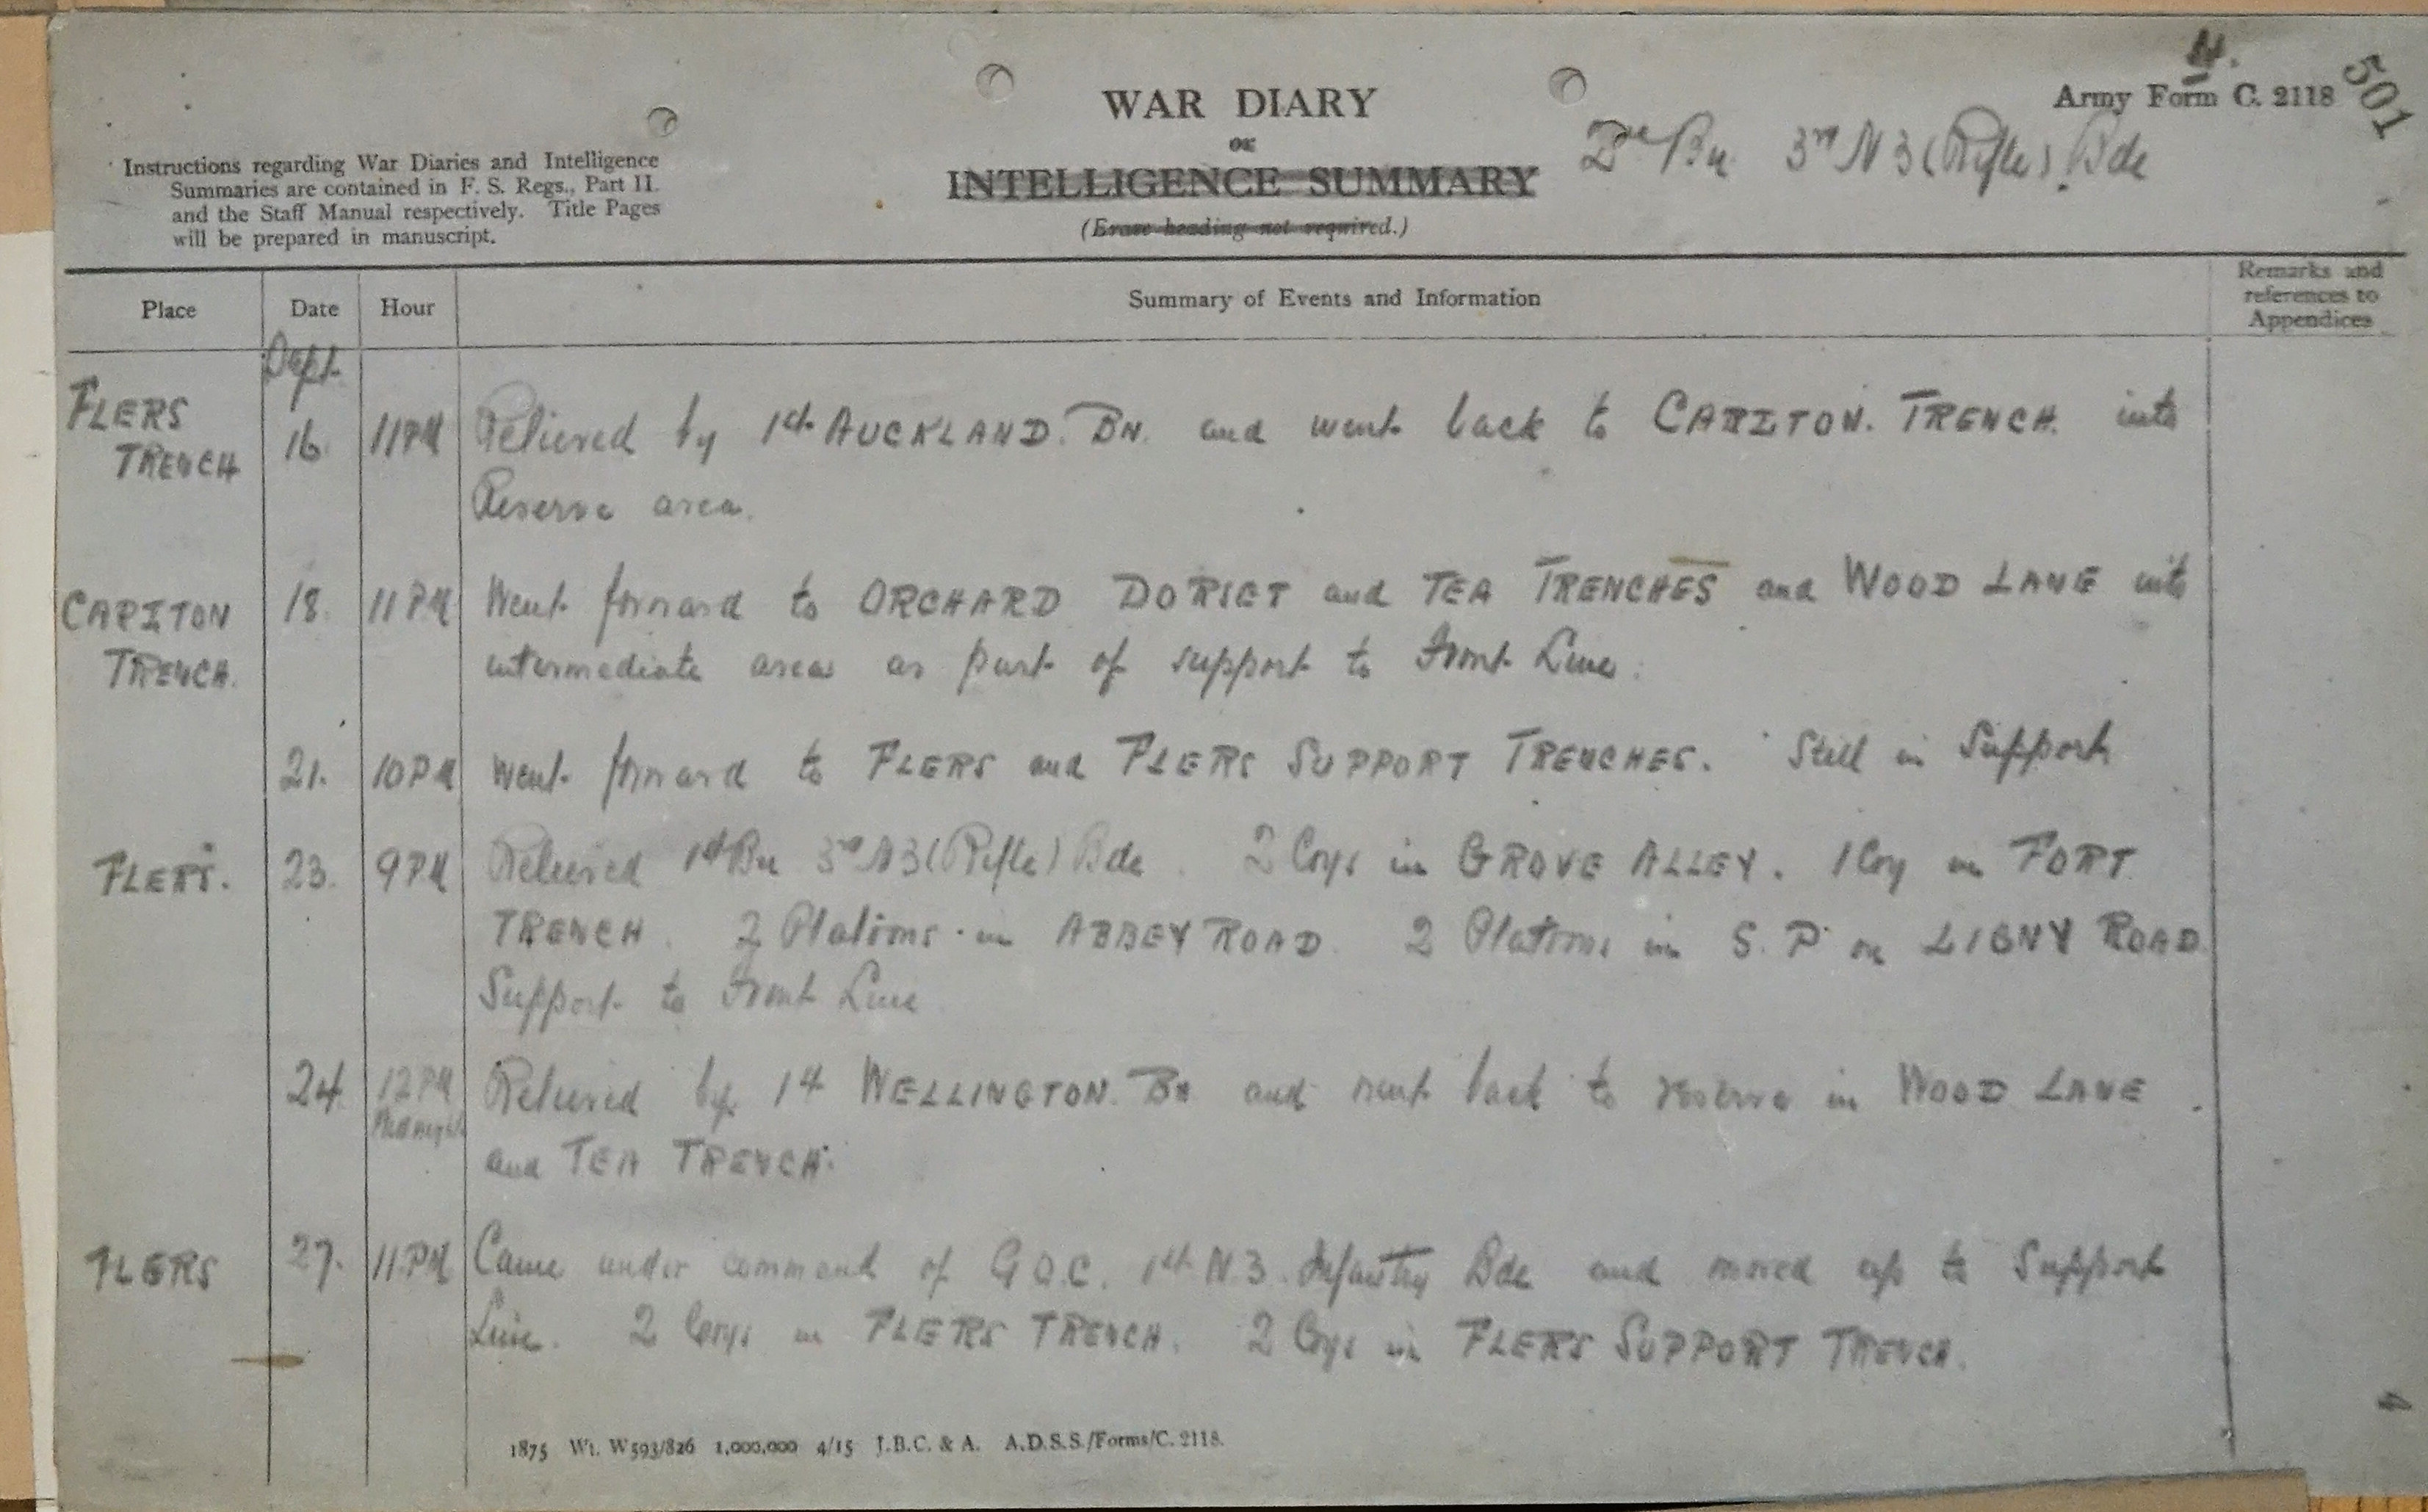 4.
Army Form C. 2118
501
WAR DIARY
OR
INTELLIGENCE SUMMARY
(Erase heading not required.)
2nd Bn 3rd N Z (Rifle) Bde
Instructions regarding War Diaries and Intelligence
Summaries are contained in F. S. Regs., Part II.
and the Staff Manual respectively. Title Pages
will be prepared in manuscript.
Place Date Hour Summary of Events and Information Remarks and
references to
Appendices
Sept.
FLERS TRENCH 16. 11PM Relieved by 1st AUCKLAND. BN. and went back to CARLTON. TRENCH. into
Reserve area.
CARLTON TRENCH. 18. 11PM Went forward to ORCHARD DORSET and TEA TRENCHES and WOOD LANE into
intermediate area as part of support to Front Line.
21. 10PM Went forward to FLERS and FLERS SUPPORT TRENCHES. Still in Support
FLERS. 23. 9PM Relieved 1st Bn 3rd NZ (Rifle) Bde. 2 Coys in GROVE ALLEY. 1 Coy in FORT
TRENCH. 2 Platoons in ABBEY ROAD. 2 Platoons in S. P on LIGNY ROAD.
Support to Front Line
24. 12PM Midnight Relieved by 1st WELLINGTON. BN and went back to reserve in WOOD LANE
and TEA TRENCH.
FLERS 27. 11.PM Came under command of G.O.C. 1st N.Z. Infantry Bde and moved up to Support
Line. 2 Coys in FLERS TRENCH. 2 Coys in FLERS SUPPORT TRENCH.
1875 Wt. W593/826 1,000,000 4/15 J.B.C. & A. A.D.S.S./Forms/C. 2118.